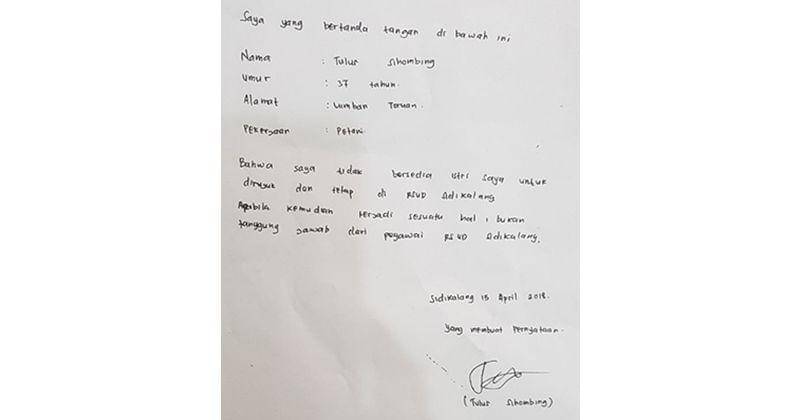 Saya yang bertanda tangan di bawah ini
Nama : Tulus Sihombing
Umur : 37 tahun.
Alamat : Lumban Toruan.
Pekerjaan : Petani.
Bahwa saya tidak bersedia istri saya untuk
dirujuk dan tetap di RSUD Sidikalang
Apabila kemudian terjadi sesuatu hal, bukan
tanggung jawab dari pegawai RSUD Sidikalang.
Sidikalang 15 April 2018.
Yang membuat Pernyataan.
(Tulus Sihombing)